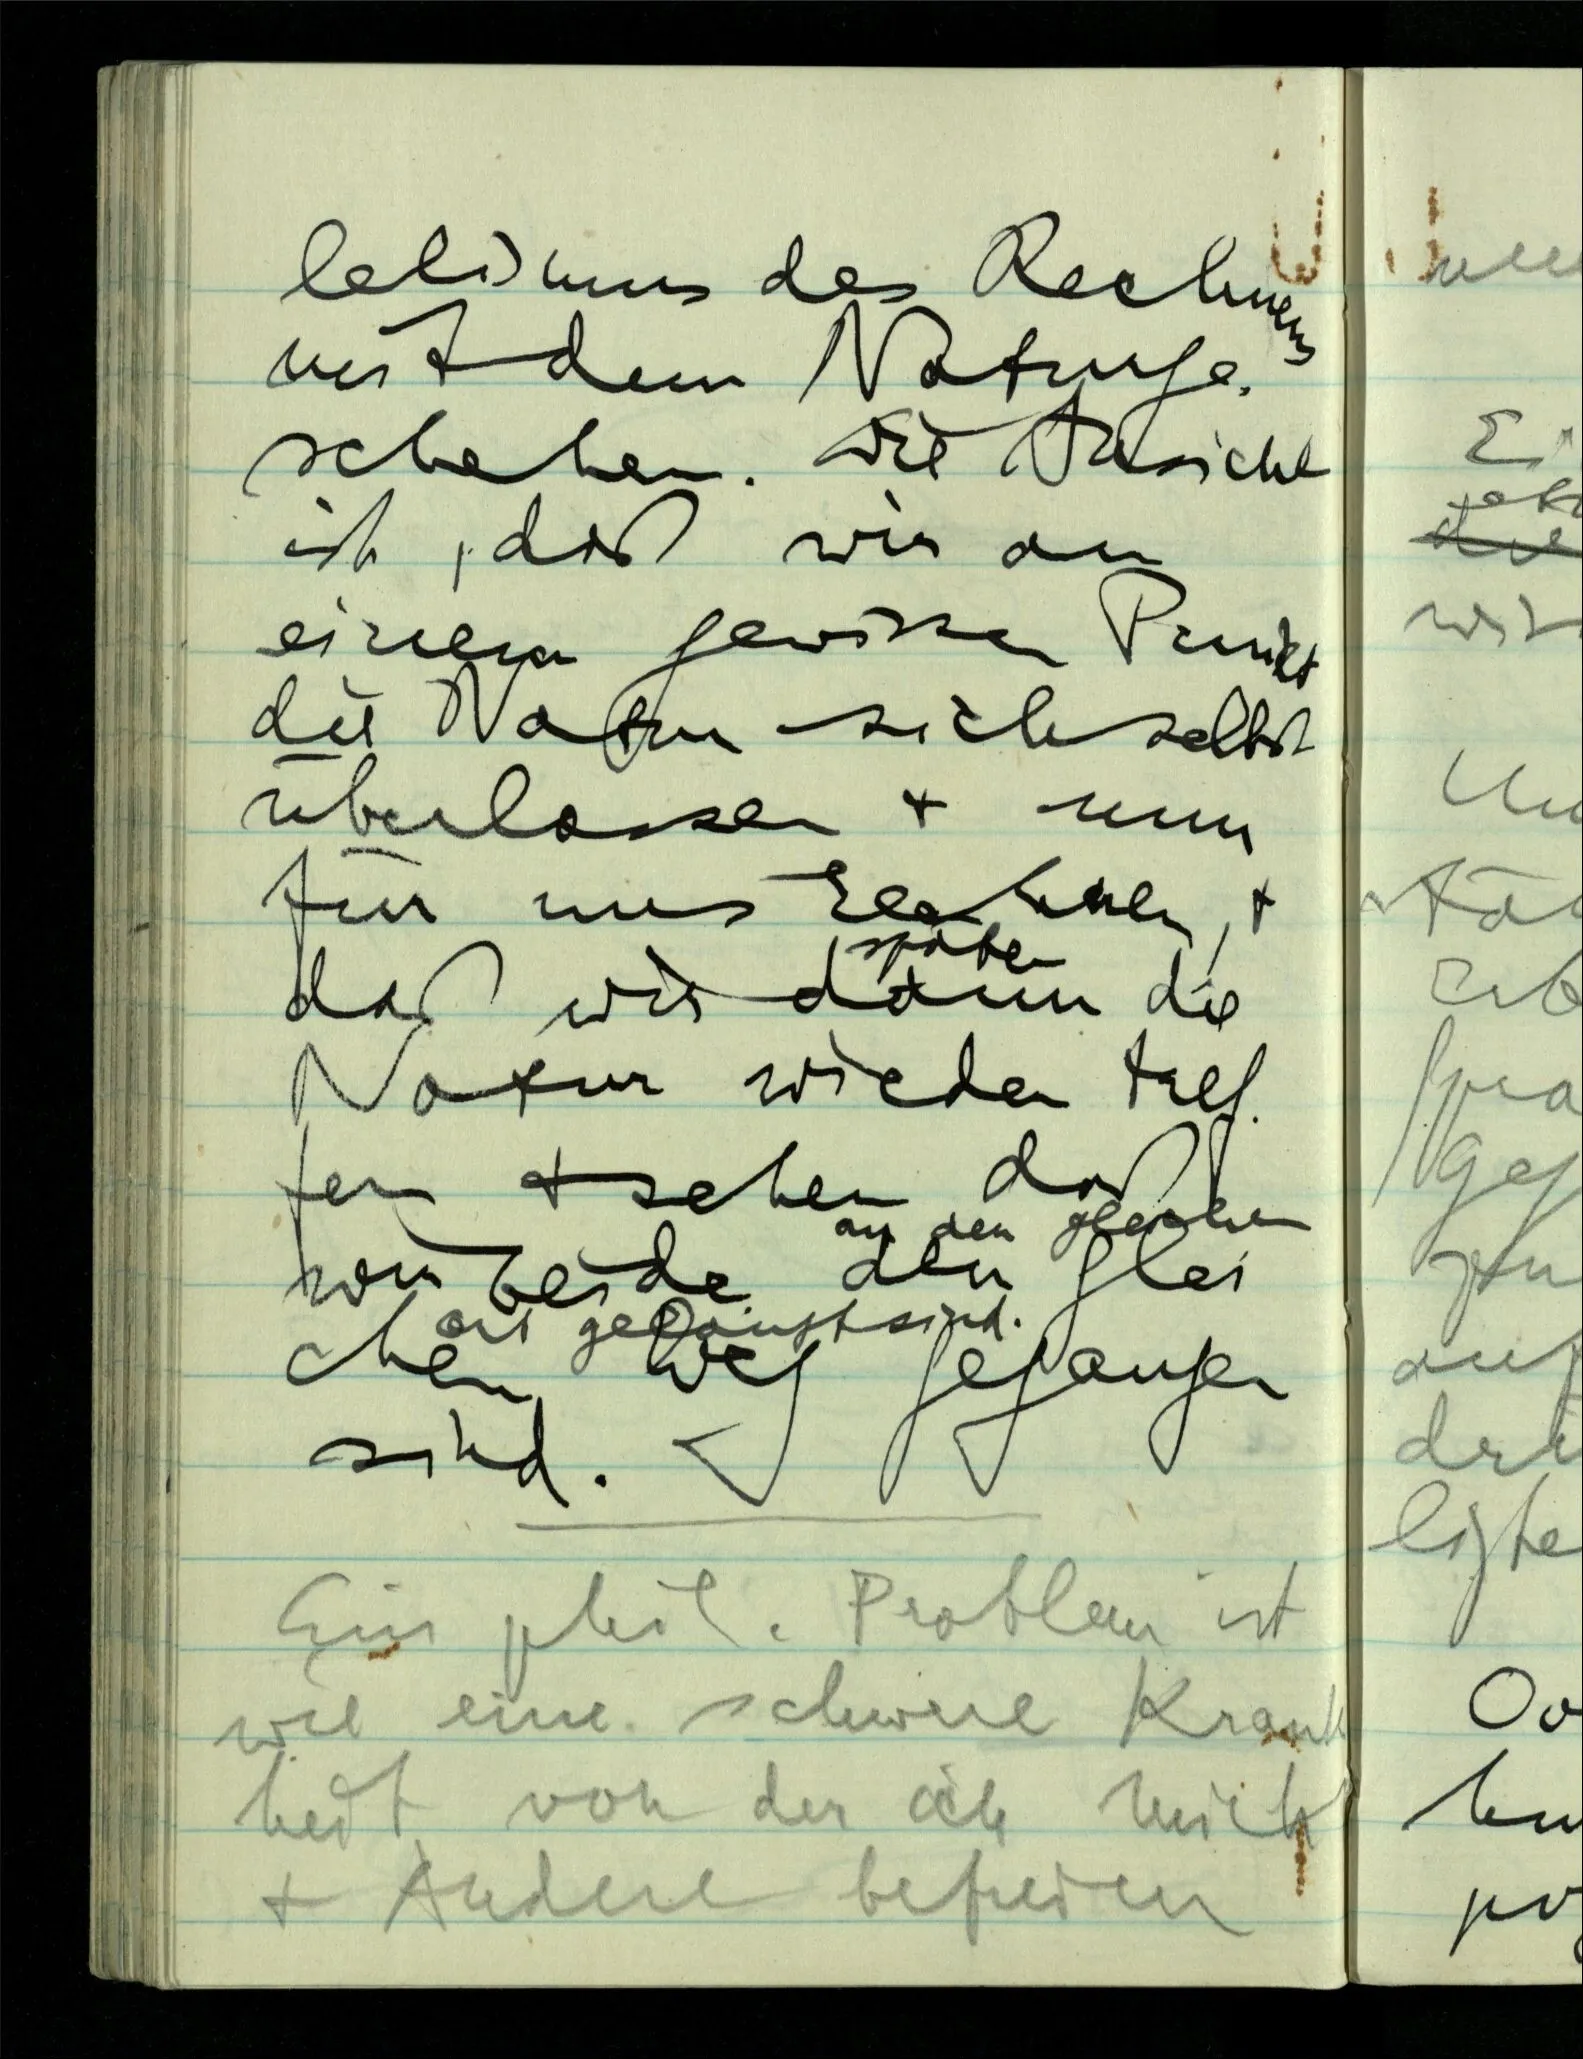 lelismus des Rechnens
mit dem Naturge-
schehen. Die Ansicht
ist, daß wir an
einem gewissen Punkt
die Natur sich selbst
überlassen + nun
für uns rechnen, +
später
daß wir dann die
Natur wieder tref-
fen + sehen daß
an den gleichen
wir beide den glei
ort gelangt sind.
chen Weg gegangen
sind.
Ein phil. Problem ist
wie eine schwere Krank
heit von der ich mich
+ Andere befreien